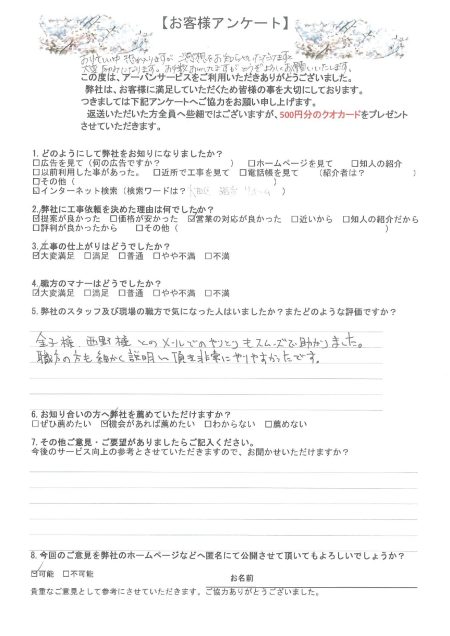 【お客様アンケート】
この度は、アーバンサービスをご利用いただきありがとうございました。
弊社は、お客様に満足していただくため皆様の事を大切にしております。
つきましては下記アンケートへご協力をお願い申し上げます。
返送いただいた方全員へ些細ではございますが、500円分のクオカードをプレゼント
させていただきます。
1. どのようにして弊社をお知りになりましたか？
□広告を見て（何の広告ですか？ ） □ホームページを見て □知人の紹介
□以前利用した事があった。 □近所で工事を見て □電話帳を見て （紹介者は？ ）
□その他（ ）
☑インターネット検索（検索ワードは？ ）
2. 弊社に工事依頼を決めた理由は何でしたか？
☑提案が良かった □価格が安かった ☑営業の対応が良かった □近いから □知人の紹介だから
□評判が良かったから □その他（ ）
3. 工事の仕上がりはどうでしたか？
☑大変満足 □満足 □普通 □やや不満 □不満
4. 職方のマナーはどうでしたか？
☑大変満足 □満足 □普通 □やや不満 □不満
5. 弊社のスタッフ及び現場の職方で気になった人はいましたか？またどのような評価ですか？
金子様、西野様とのメールでのやりとりもスムーズで助かりました。
職方の方も細かく説明し頂き非常にやりやすかったです。
6. お知り合いの方へ弊社を薦めていただけますか？
□ぜひ薦めたい ☑機会があれば薦めたい □わからない □薦めない
7. その他ご意見・ご要望がありましたらご記入ください。
今後のサービス向上の参考とさせていただきますので、お聞かせいただけますか？
8. 今回のご意見を弊社のホームページなどへ匿名にて公開させて頂いてもよろしいでしょうか？
☑可能 □不可能
お名前
貴重なご意見として参考にさせていただきます。ご協力ありがとうございました。